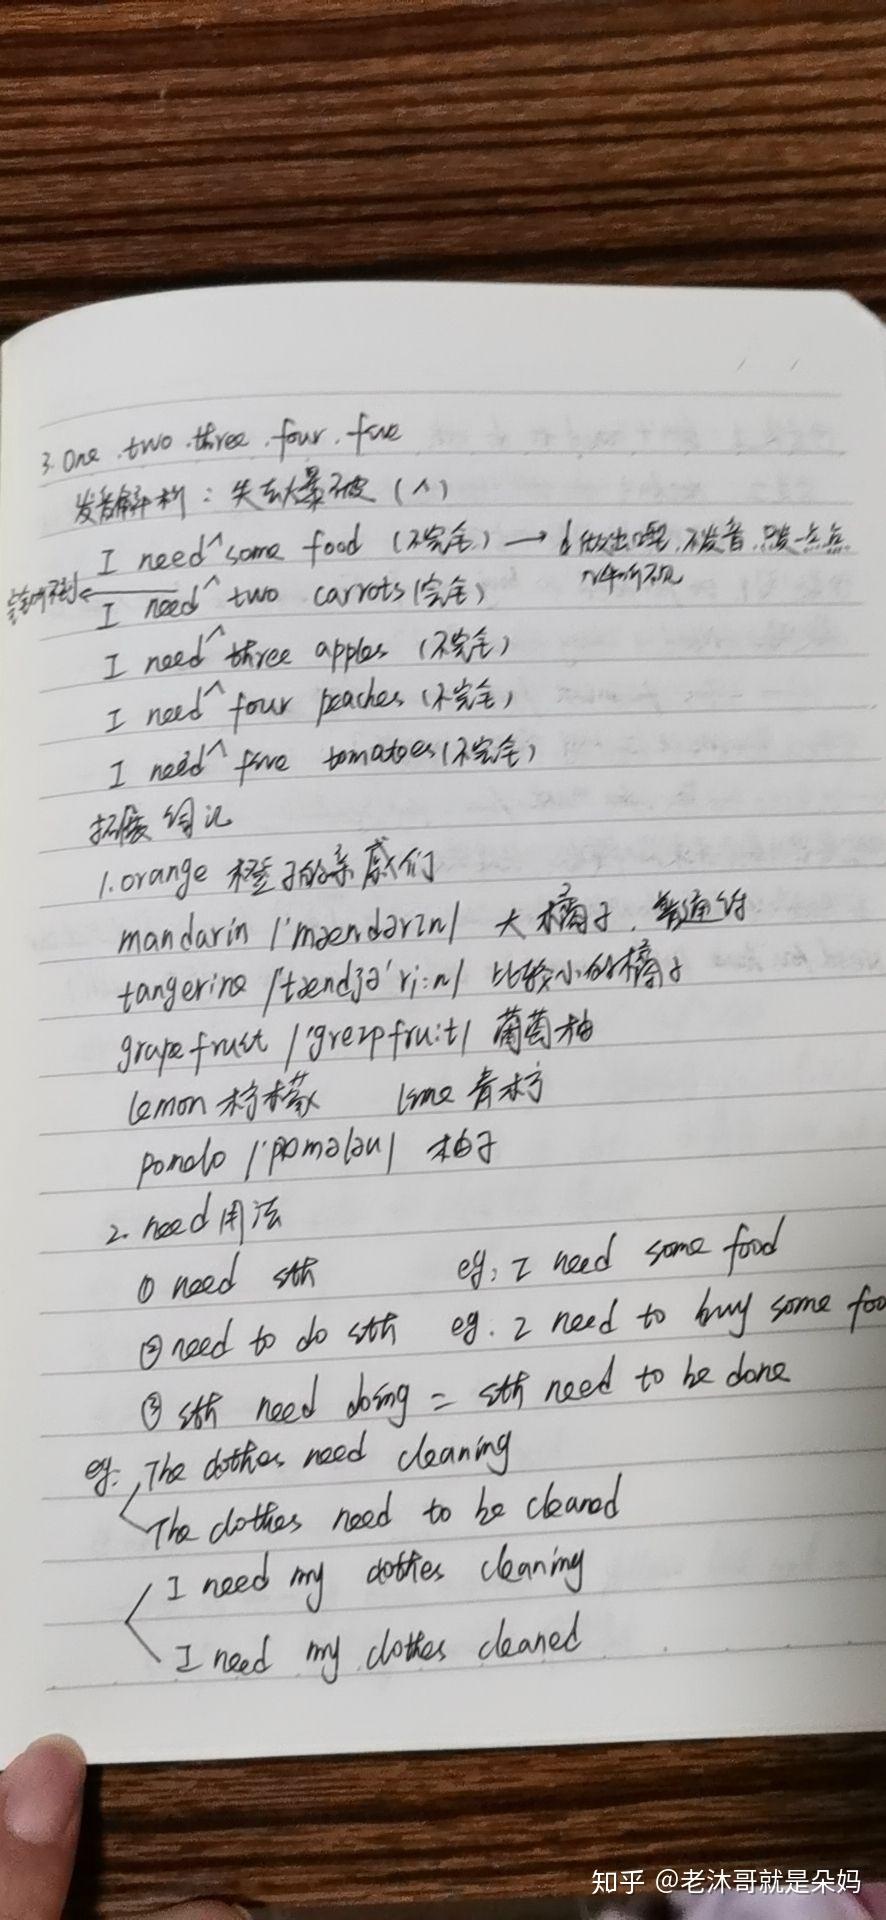 3. One . two . three . four . five
发音解析：失去爆破（^）
I need^some food（不完全）→ d做出嘴, 不发音, 只发一点点
几乎听不见
完全听不到← I need^ two carrots（完全）
I need^ three apples（不完全）
I need^ four peaches（不完全）
I need^ five tomatoes（不完全）
拓展词汇
1. orange 橙子的亲戚们
mandarin /'mændərɪn/ 大橘子, 普通的
tangerine /'tændʒə'ri:n/ 比较小的橘子
grapefruit /'greɪpfru:t/ 葡萄柚
lemon 柠檬 lime 青柠
pomelo /'pɒmələu/ 柚子
2. need用法
① need sth eg. I need some food
② need to do sth eg. I need to buy some foo
③ sth need doing = sth need to be done
eg. The clothes need cleaning
The clothes need to be cleaned
I need my clothes cleaning
I need my clothes cleaned
知乎 @老沐哥就是朵妈